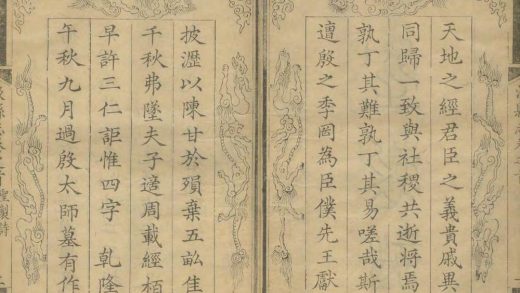 天地之經君臣之義貴戚異
同歸一致與社稷共逝將焉
孰丁其難孰丁其易嗟哉斯
邅殷之季罔為臣僕先王獻
披瀝以陳甘於殞棄五畝佳
千秋弗墜夫子適周載經栢
早許三仁詎惟四字 乾隆
午秋九月過殷太師墓有作